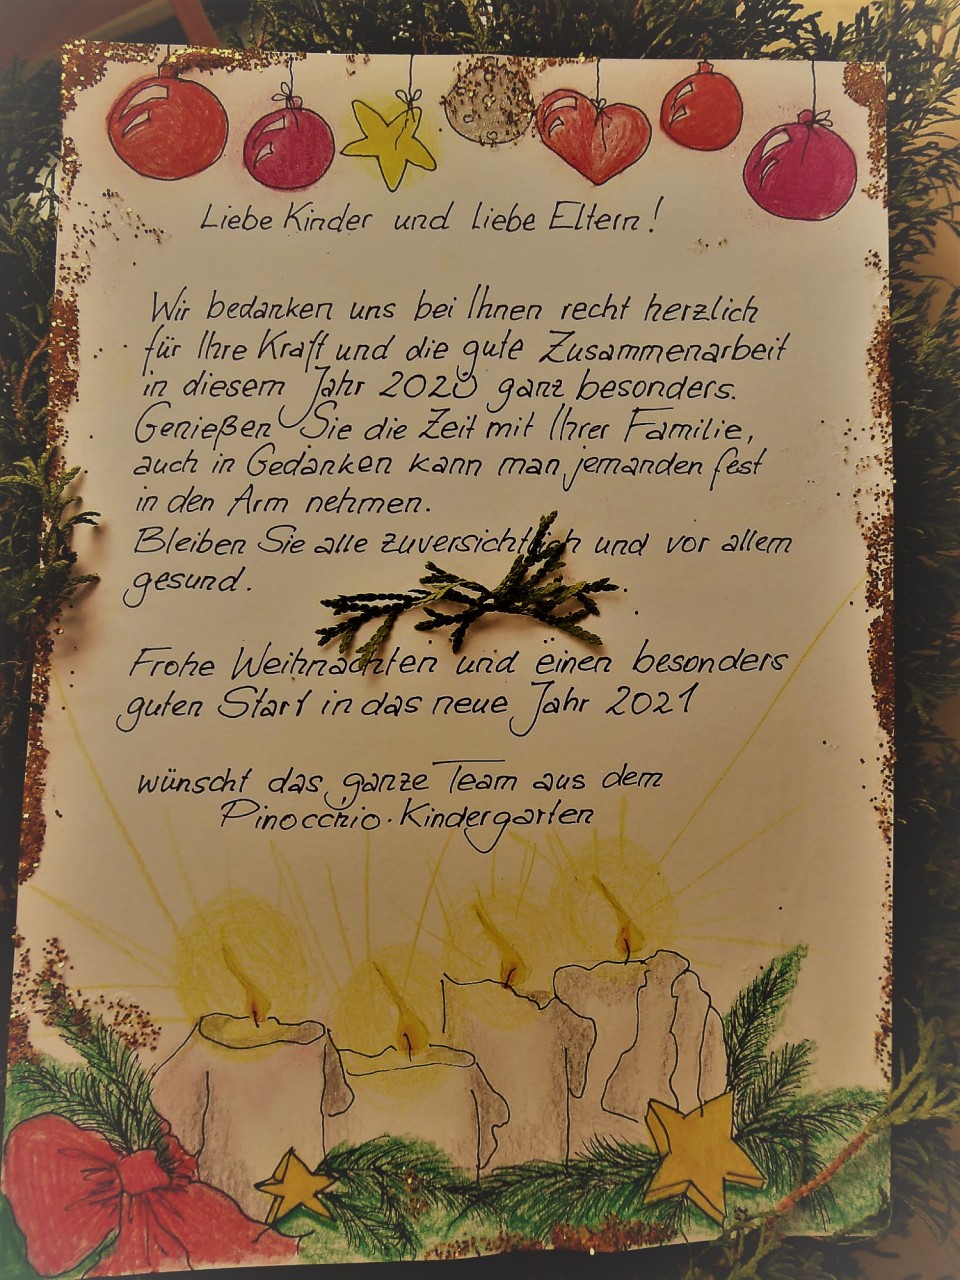 Liebe Kinder und liebe Eltern!
Wir bedanken uns bei Ihnen recht herzlich
für Ihre Kraft und die gute Zusammenarbeit
in diesem Jahr 2020 ganz besonders.
Genießen Sie die Zeit mit Ihrer Familie,
auch in Gedanken kann man jemanden fest
in den Arm nehmen.
Bleiben Sie alle zuversichtlich und vor allem
gesund.
Frohe Weihnachten und einen besonders
guten Start in das neue Jahr 2021
wünscht das ganze Team aus dem
Pinocchio-Kindergarten